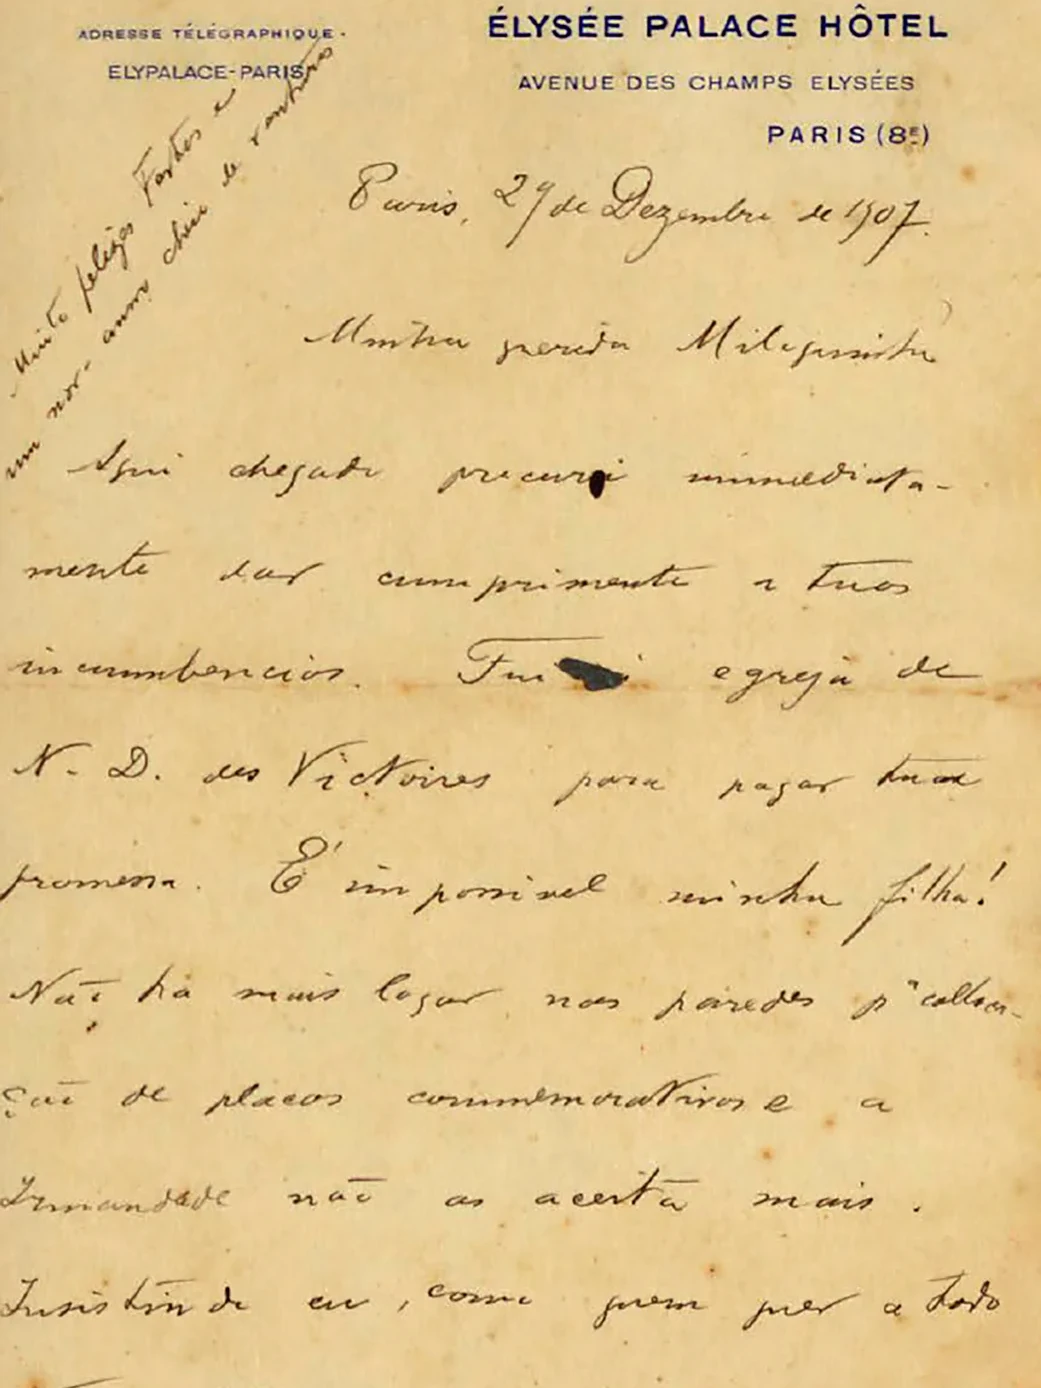 ADRESSE TÉLÉGRAPHIQUE.
ELYPALACE-PARIS
ÉLYSÉE PALACE HÔTEL
AVENUE DES CHAMPS ELYSÉES
PARIS (8E)
Muito felizes Festas e
um novo anno cheio de venturas
Paris, 29 de Dezembro de 1907.
Minha querida
Aqui chegado procurei immediata-
mente dar cumprimento a tuas
incumbencias. Fui egreja de
N. D. des Victoires para pagar tua
promessa. É impossivel minha filha!
Não ha mais logar nas paredes pª colloca-
ção de placas commemorativas e a
Irmandade não as aceita mais.
Insistindo eu, como quem quer a todo